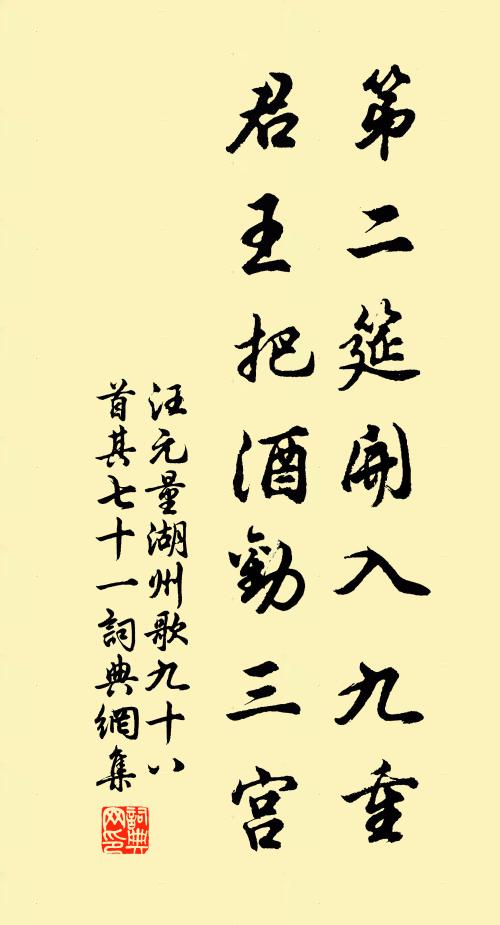 第二筵開入九重
君王把酒勸三宮
汪元量湖州歌九十八
首其七十一詞典網集
詞典
网印